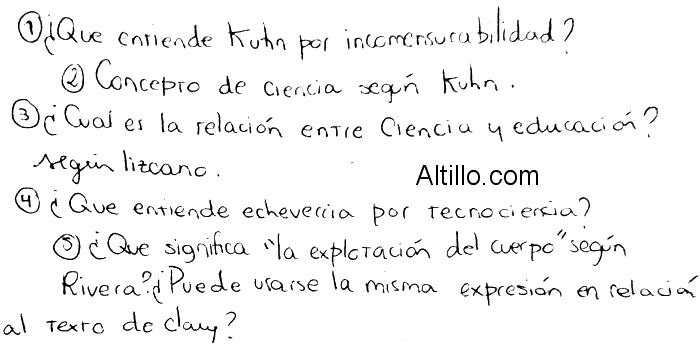 ①¿Que entiende Kuhn por incomensurabilidad?
② Concepto de ciencia según Kuhn.
③¿Cual es la relación entre Ciencia y educación?
según lizcano.
Altillo.com
④ ¿Que entiende echeverria por tecnociencia?
⑤ ¿Que significa "la explotación del cuerpo" según
Rivera?¿Puede usarse la misma expresión en relación
al texto de